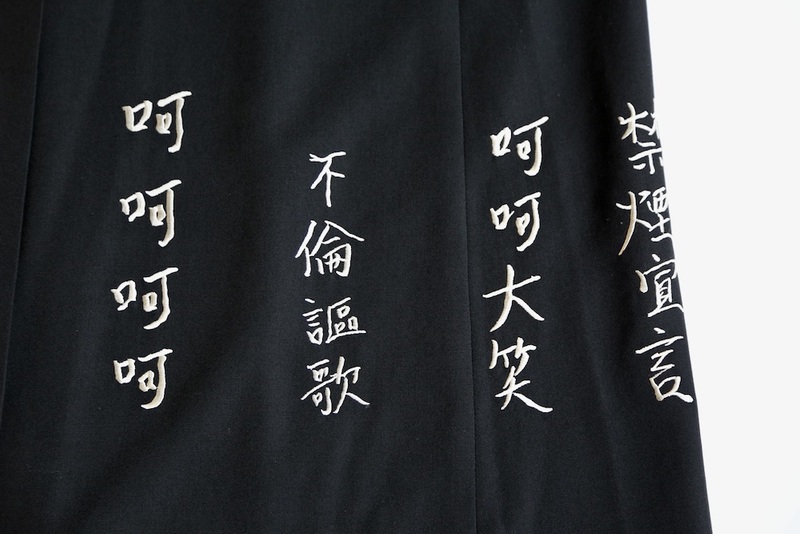 禁煙宣言
呵呵大笑
不倫謳歌
呵呵呵呵